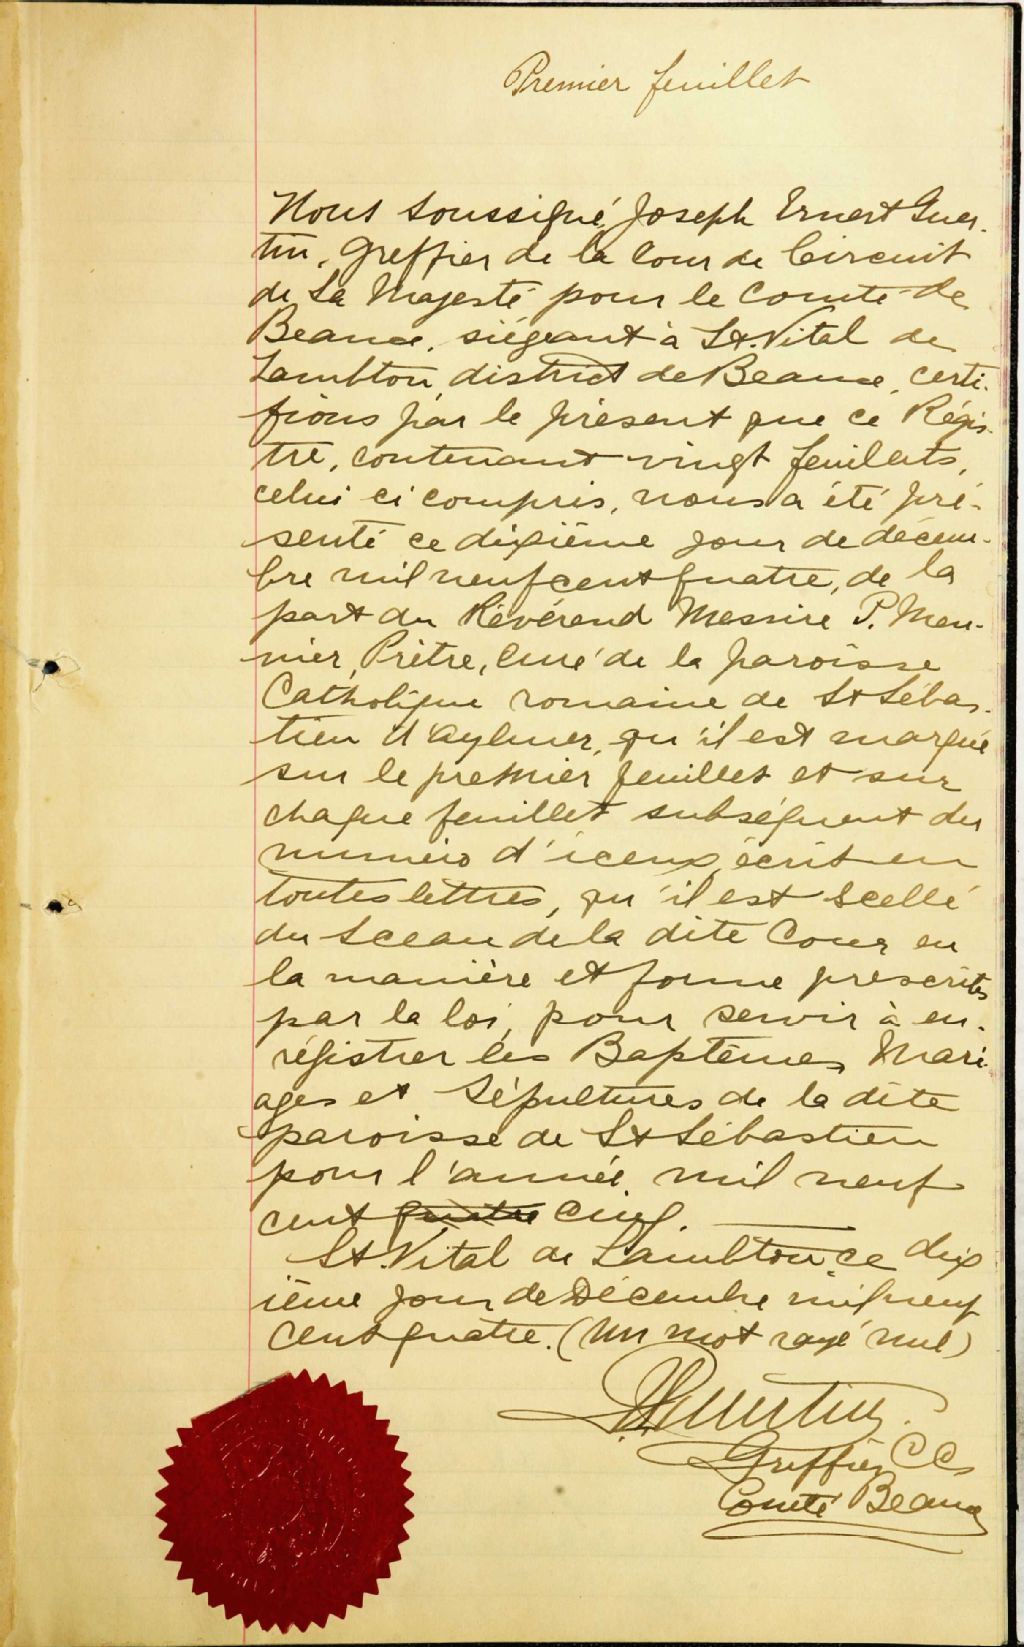 Premier feuillet
Nous soussigné, Joseph Ernest Guer-
tin, Greffier de la Cour de Circuit
de Sa Majesté pour le Comté de
Beauce, siégeant à St. Vital de
Lambton, district de Beauce, certi-
fions par le présent que ce Régis-
tre, contenant vingt feuillets,
celui ci compris, nous a été pré-
senté ce dixième jour de décem-
bre mil neuf cent quatre, de la
part du Révérend Messire P. Meu-
nier, Prêtre, Curé de la paroisse
Catholique romaine de St Sébas-
tien d'Aylmer, qu'il est marqué
sur le premier feuillet et sur
chaque feuillet subséquent du
numéro d'iceux, écrit en
toutes lettres, qu'il est scellé
du Sceau de la dite Cour en
la manière et forme prescrites
par la loi, pour servir à en-
régistrer les Baptêmes, Mari-
ages et Sépultures de la dite
paroisse de St Sébastien
pour l'année mil neuf
cent quatre cinq.
St. Vital de Lambton, ce dix
ième jour de Décembre mil neuf
cent quatre. (Un mot rayé nul)
Guertin
Greffier C C
Comté Beauce